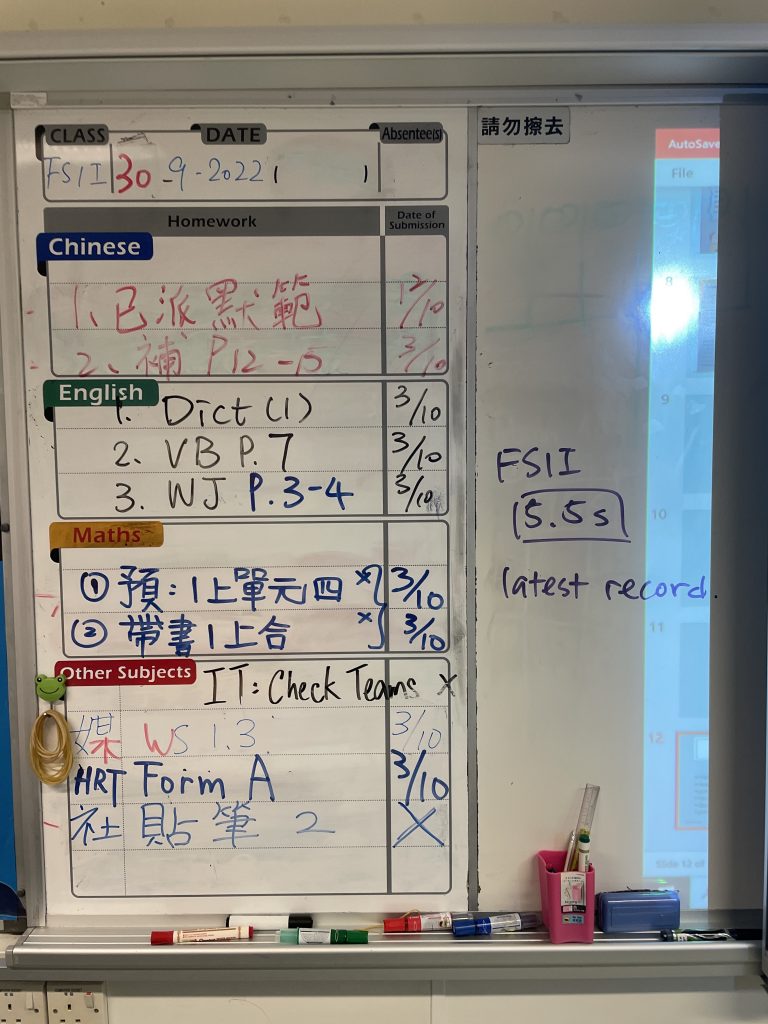 CLASS DATE Absentee(s)
FS1I 30-9-2022 ( )
Homework Date of Submission
Chinese
1、已派默範 12/10
2、補 P12-15 3/10
English
1. Dict (1) 3/10
2. VB P.7 3/10
3. WJ P.3-4 3/10
Maths
① 預：1上單元四 x 3/10
② 帶書1上合 x 3/10
Other Subjects IT: Check Teams x
媒 WS 1.3 3/10
HRT Form A 3/10
社 貼筆 2 X
請勿擦去
AutoSave
File
8
9
10
11
12
Slide 12 of
FS1I
15.5s
latest record.